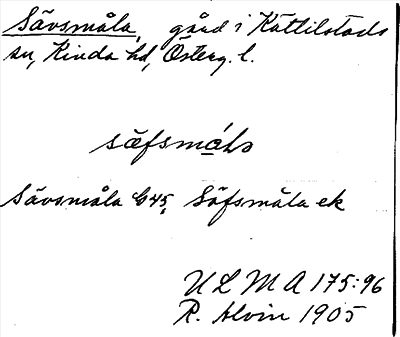 Sävsmåla, gård i Kättilstads
sn, Kinda hd, Österg. l.
säfsmála
Sävsmåla G45, Säfsmåla ek
ULMA 175:96
R. Alvin 1905